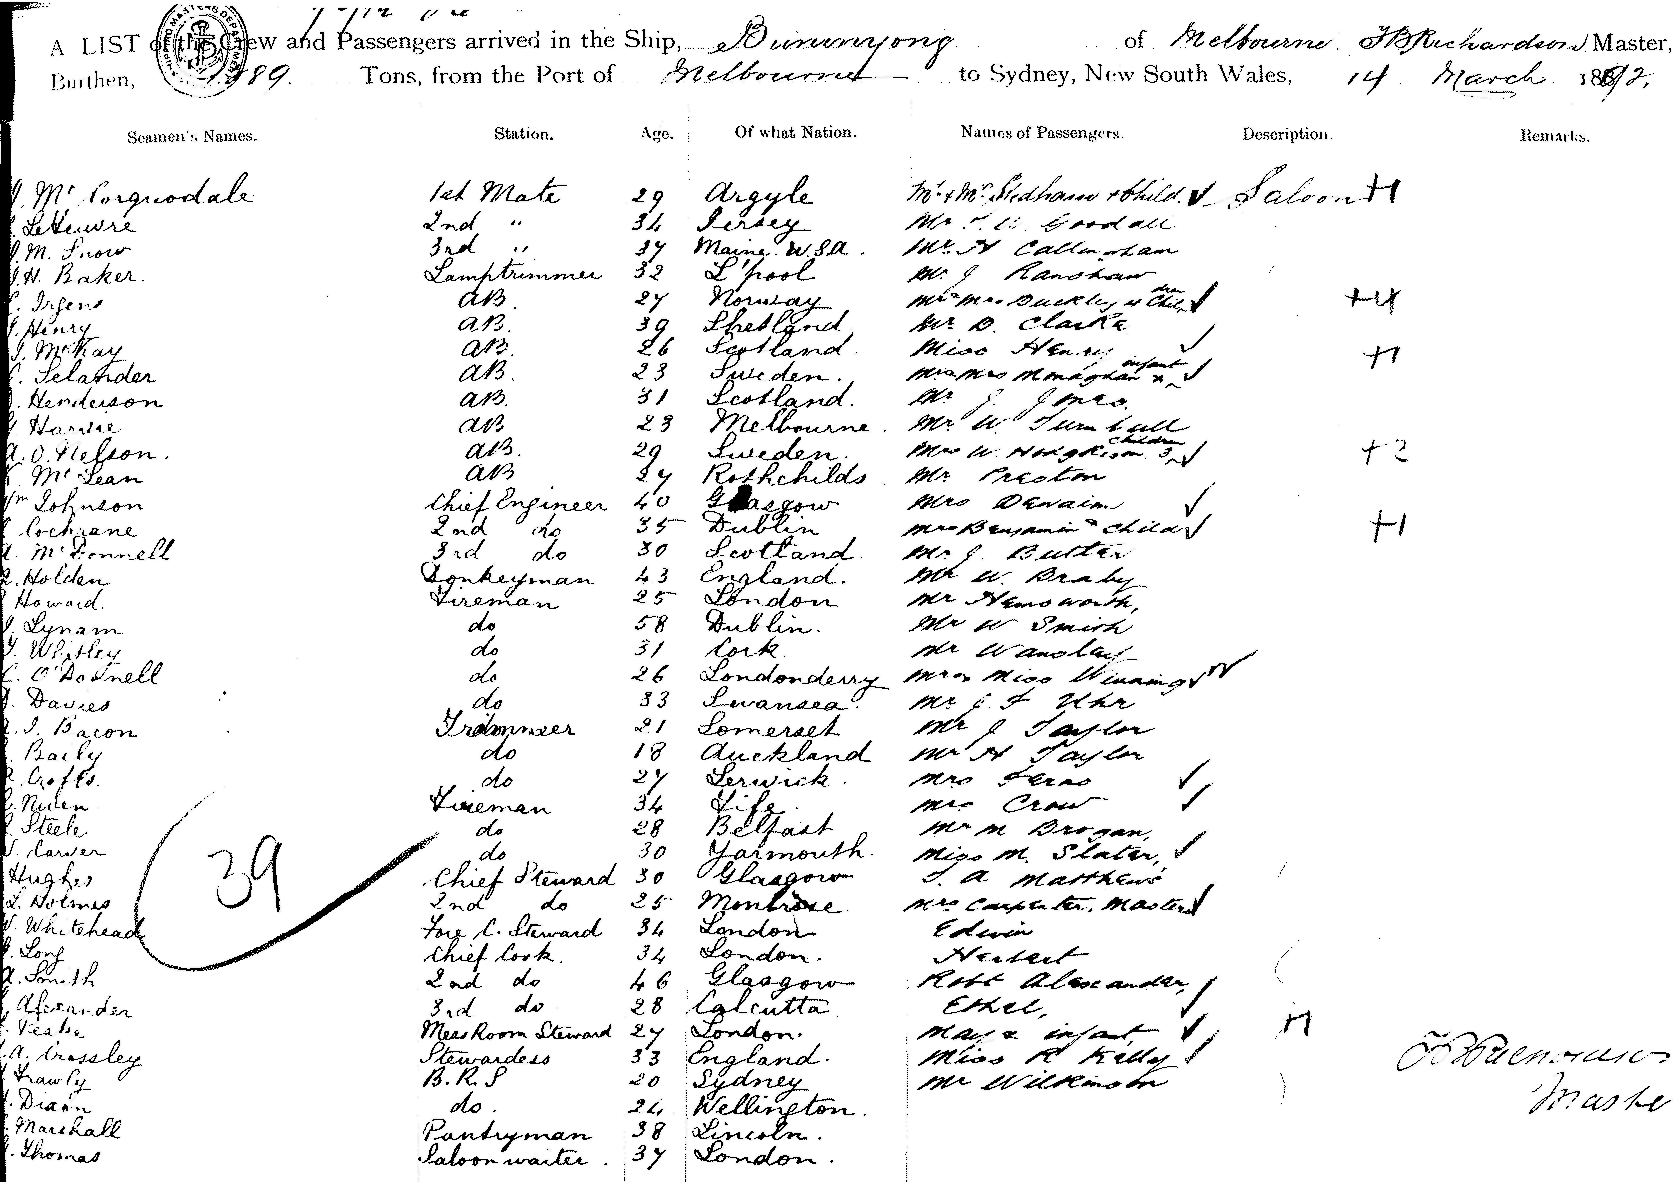 A LIST of the Crew and Passengers arrived in the Ship, Bunninyong of Melbourne HB Richardson, Master,
Burthen, 1989. Tons, from the Port of Melbourne - to Sydney, New South Wales, 14 March 1892.
Seamen's Names. Station. Age. Of what Nation. Names of Passengers. Description. Remarks.
Mc Corquodale 1st Mate 29 Argyle Mr & Mrs Stedham & Child. Saloon +1
2nd " 34 Jersey Mr Goodall
J. M. Snow 3rd " 37 Maine U.S.A. Mr. H Callingham
J. H. Baker. Lamptrimmer 32 L'pool Mr. J Ranshaw
Irgens AB. 27 Norway Mr & Mrs Buckley 4 Chil +4
Henry AB. 39 Shetland Mr D. Clarke
McKay AB. 26 Scotland Miss Henry +1
Selander AB. 23 Sweden. Mr & Mrs Monaghan & infant
Henderson AB. 31 Scotland. Mr J. Jones.
Harvie AB 23 Melbourne. Mr W. Turnbull
A. O. Nelson. AB. 29 Sweden. Mrs W. Hodgkison 3 Children +2
McLean AB 27 Rothchilds Mr Preston
Wm Johnson Chief Engineer 40 Glasgow Mrs
Cochrane 2nd do 35 Dublin Mrs Benjamin & Child +1
McDonnell 3rd do 30 Scotland. Mr J. Butter
Holden Donkeyman 43 England. Mr W. Braby
Howard. Fireman 25 London Mr Hemsworth,
Lynam do 58 Dublin. Mr W Smith
Whitley do 31 Cork Mr Wansley
O'Donnell do 26 Londonderry Mr & Miss Winning
Davies do 33 Swansea. Mr J. F Uhr
J. Bacon Trimmer 21 Somerset Mr J Taylor
Baily do 18 Auckland Mr H Taylor
Crofts. do 27 Lerwick. Mrs Feras
Niven Fireman 34 Fife. Mrs Crow
Steele do 28 Belfast Mr M Brogan,
Carver do 30 Yarmouth. Miss M. Slater,
Hughes Chief Steward 30 Glasgow T. A Matthews
39
L. Holmes 2nd do 25 Montrose Mrs Carpenter. Masters
Whitehead Fore C. Steward 34 London Edwin
Long Chief Cook. 34 London. Herbert
Smith 2nd do 46 Glasgow Robt Alexander,
Alexander 3rd do 28 Calcutta Ethel,
Veale Mess Room Steward 27 London. May & infant, +1
A. Crossley Stewardess 33 England. Miss R Kelly
Frawly B.R.S 20 Sydney Mr Wilkinson
HB Richardson
Dixon do. 24 Wellington.
Master
Marshall Pantryman 38 Lincoln.
Thomas Saloon waiter. 37 London.